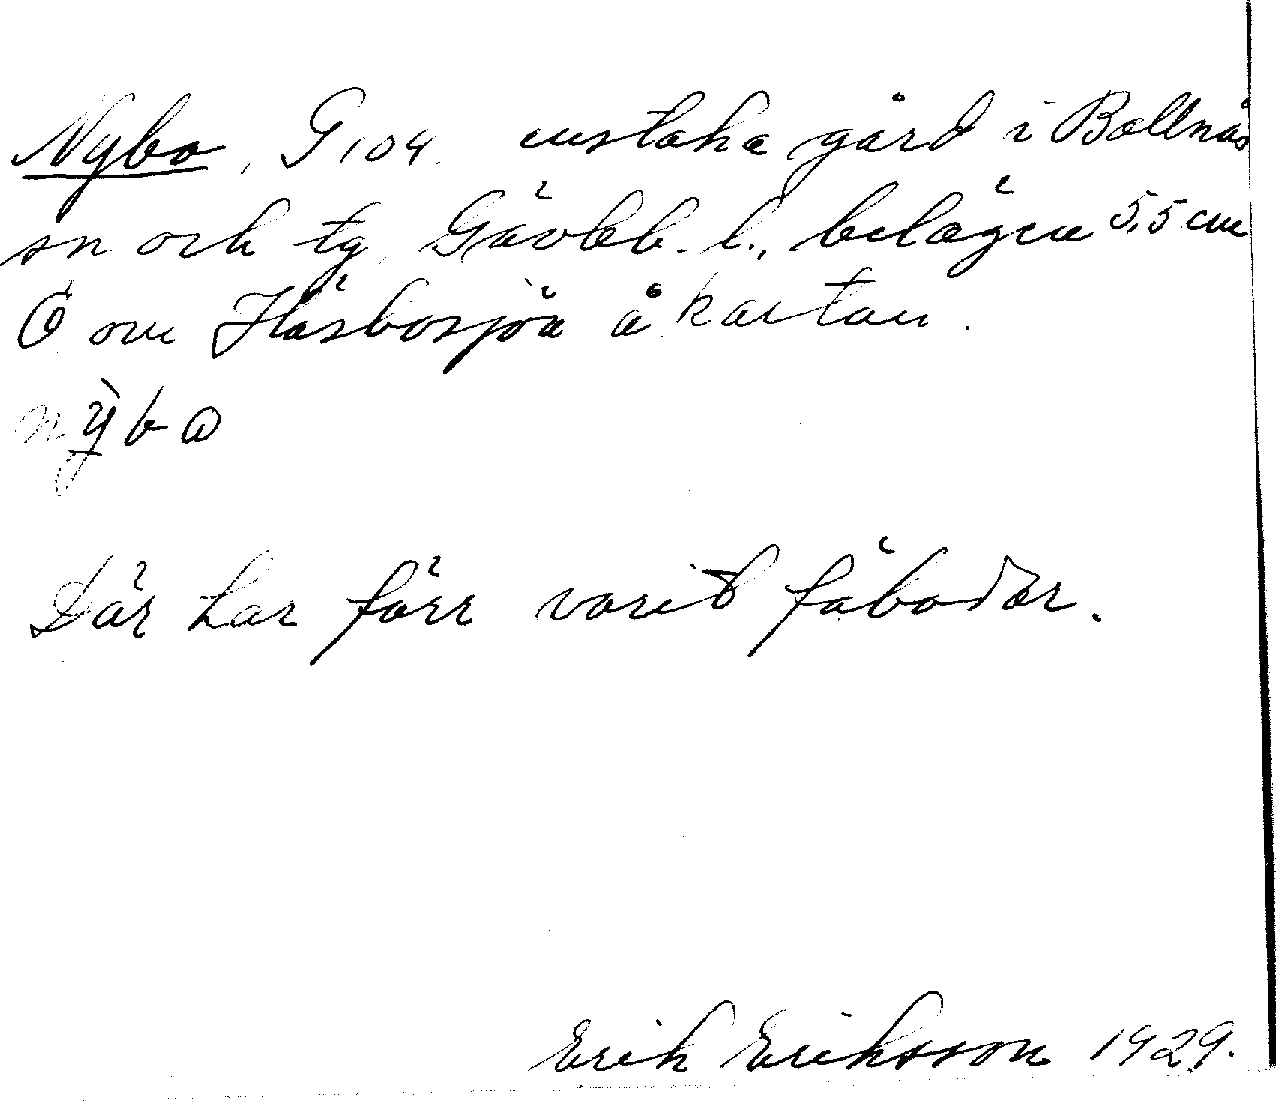 Nybo, G 104. enstaka gård i Bollnäs
sn och tg, Gävleb. l., belägen 5,5 cm
Ö om Häsbosjön å kartan.
nỳbo
Där har förr varit fäbodar.
Erik Eriksson 1929.